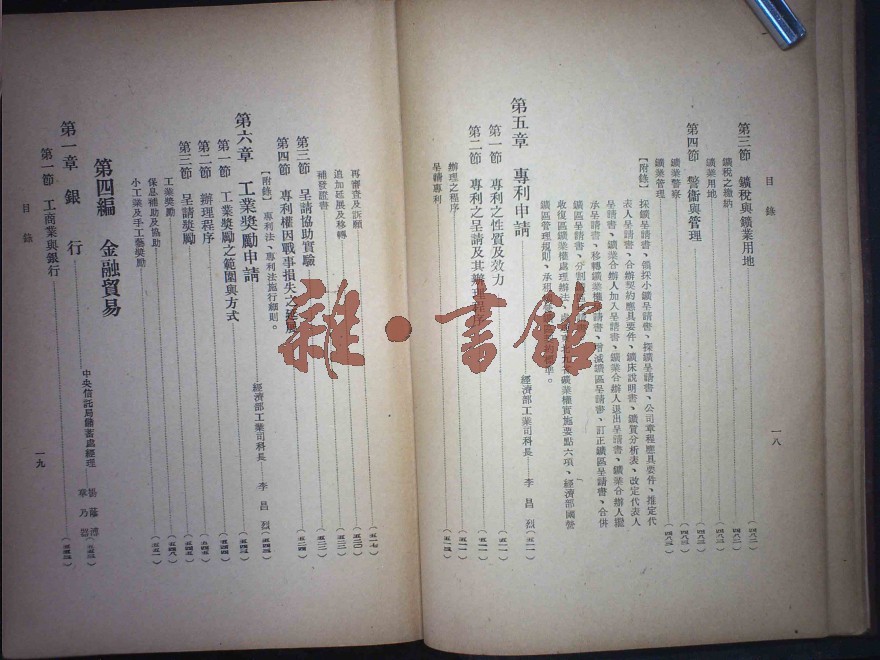 目錄
一八
第三節 鑛稅與鑛業用地 (四八二)
鑛稅之繳納 (四八二)
鑛業用地 (四八三)
第四節 警衞與管理 (四八三)
鑛業警察 (四八三)
鑛業管理 (四八三)
【附錄】 探鑛呈請書、領採小鑛呈請書、採鑛呈請書、公司章程應具要件、推定代
表人呈請書、合辦契約應具要件、鑛床說明書、鑛質分析表、改定代表人
呈請書、鑛業合辦人加入呈請書、鑛業合辦人退出呈請書、鑛業合辦人繼
承呈請書、移轉鑛業權呈請書、增減鑛區呈請書、訂正鑛區呈請書、合併
鑛區呈請書、分割鑛區
收復區鑛業權處理辦法 鑛業權實施要點六項、經濟部國營
鑛區管理規則、承租
第五章 專利申請 經濟部工業司科長 李昌烈 (五一一)
第一節 專利之性質及效力 (五一一)
第二節 專利之呈請及其辦理程序 (五一一)
辦理之程序 (五一一)
呈請專利 (五一三)
再審查及訴願 (五一七)
追加延展及移轉 (五二〇)
補發證書 (五二二)
第三節 呈請協助實驗 (五二三)
第四節 專利權因戰事損失之延展 (五二四)
【附錄】 專利法、專利法施行細則。
第六章 工業獎勵申請 經濟部工業司科長 李昌烈 (五四三)
第一節 工業獎勵之範圍與方式 (五四四)
第二節 辦理程序 (五四五)
第三節 呈請獎勵 (五四五)
工業獎勵 (五四八)
保息補助及協助 (五五一)
小工業及手工藝獎勵
第四編 金融貿易
第一章 銀行 中央信託局儲蓄處經理 章乃器 (五五三)
第一節 工商業與銀行 (五五三)
目錄
一九
雜·書館